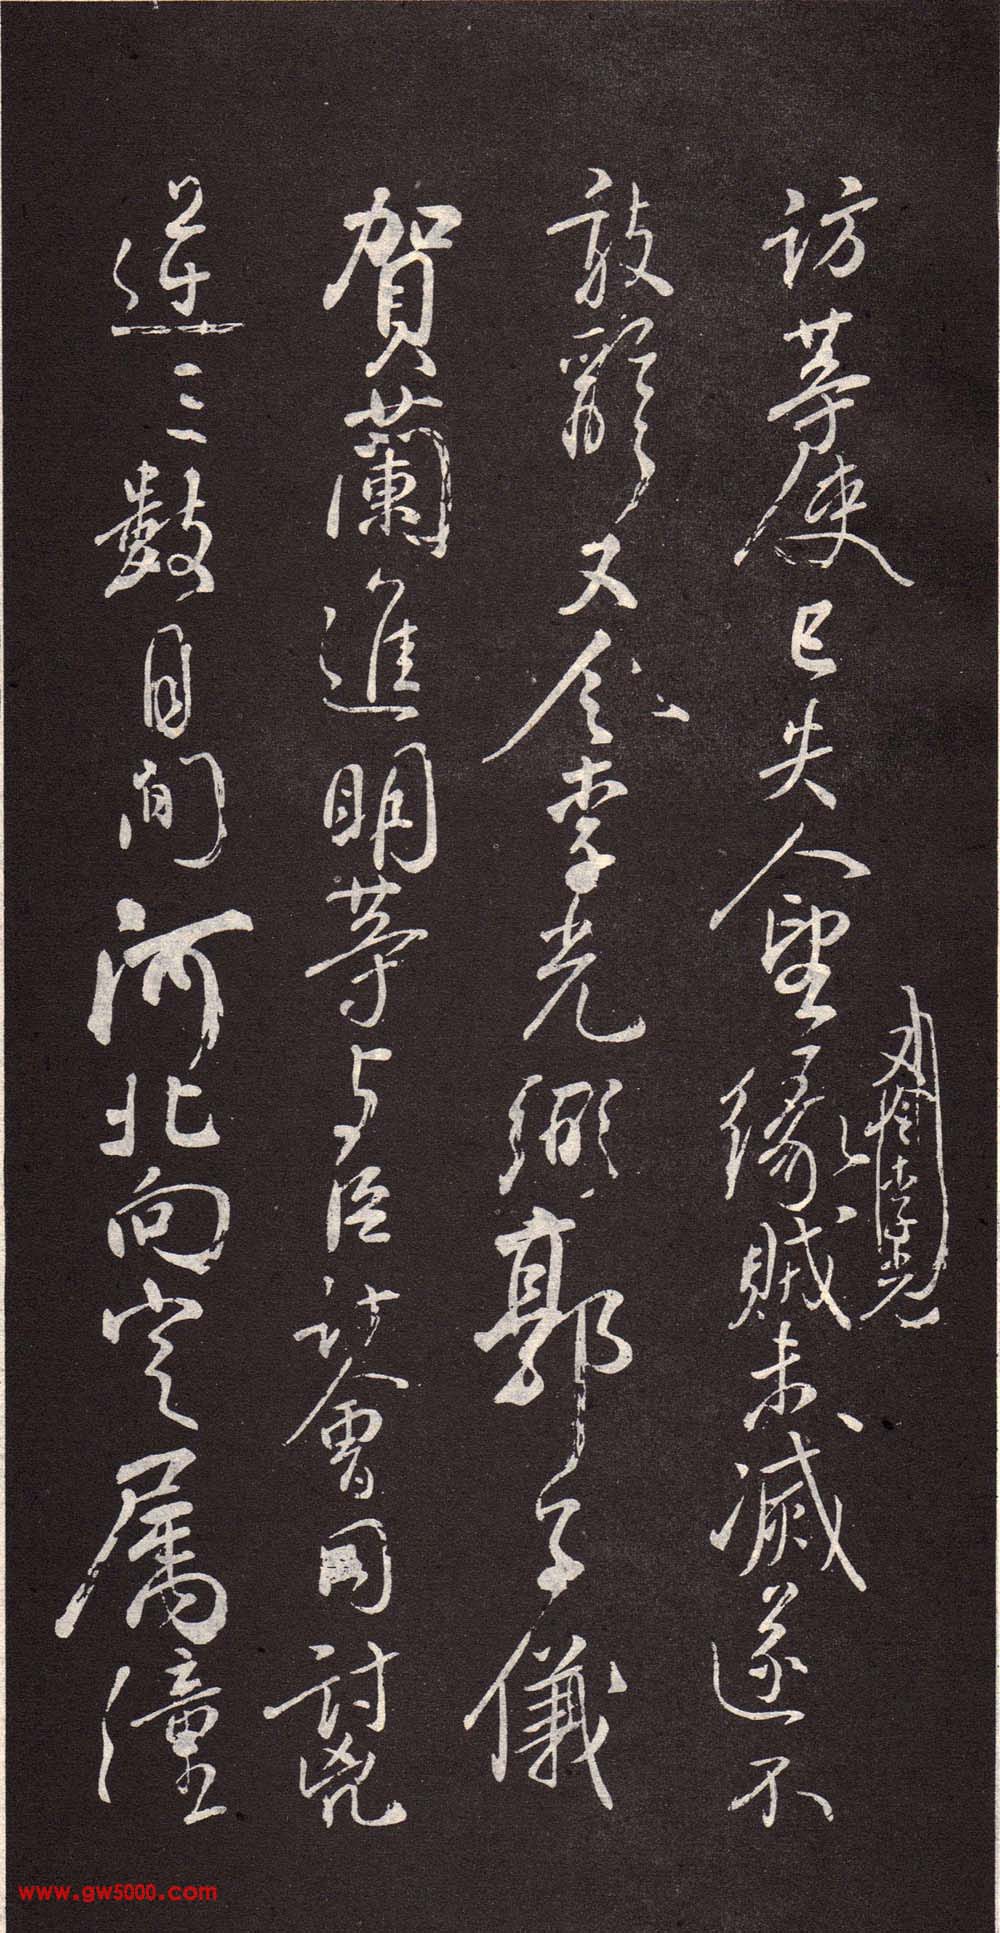 訪等使已失人望緣賊未滅遂不
又李光
敢辭又令李光弼郭子儀
賀蘭進明等与臣計會同討兇
逆三數月間河北向定属潼
www.gw5000.com